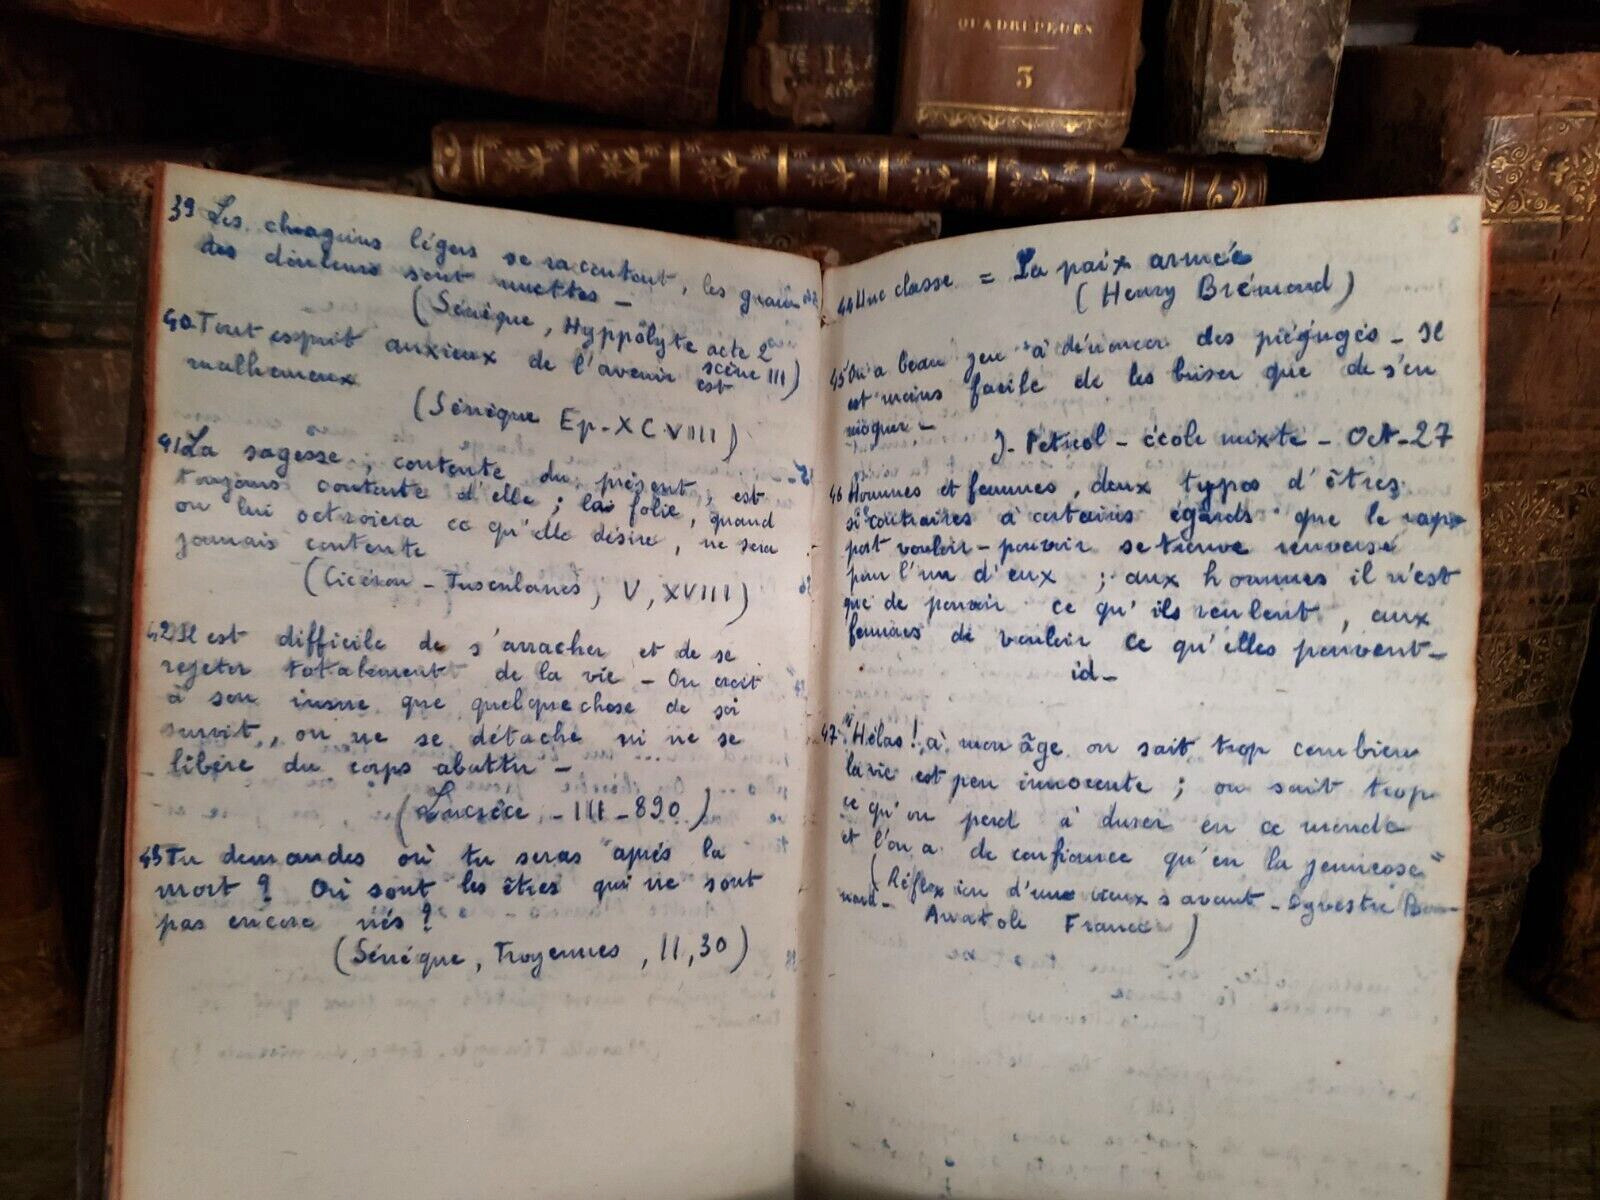 QUADRUPEDES
3
39 Les chagrins légers se racontent, les grandes
des douleurs sont muettes _
(Sénèque, Hyppôlyte acte 2
scène III)
40 Tout esprit anxieux de l'avenir est
malheureux
(Sénèque Ep. XCVIII)
41 La sagesse, contente du présent, est
toujours contente d'elle ; la folie, quand
on lui octroiera ce qu'elle désire, ne sera
jamais contente
(Cicéron - Tusculanes, V, XVIII)
42 Il est difficile de s'arracher et de se
rejeter totalement de la vie - On croit
à son insue que quelque chose de soi
survit, on ne se détache ni ne se
libère du corps abattu _
(Lucrèce - III - 890)
43 Tu demandes où tu seras après la
mort ? Où sont les êtres qui ne sont
pas encore nés ?
(Sénèque, Troyennes, II, 30)
5
44 Une classe = La paix armée
(Henry Brémond)
45 On a beau jeu à dénoncer des préjugés - Il
est moins facile de les briser que de s'en
moquer -
J. Petriol - école mixte - Oct - 27
46 Hommes et femmes, deux types d'êtres
si contraires à certains égards que le rap-
port vouloir - pouvoir se trouve renversé
pour l'un d'eux ; aux hommes il n'est
que de pouvoir ce qu'ils veulent, aux
femmes de vouloir ce qu'elles peuvent -
id -
47 "Hélas ! à mon âge on sait trop combien
la vie est peu innocente ; on sait trop
ce qu'on perd à durer en ce monde
et l'on a de confiance qu'en la jeunesse"
(Réflexion d'un vieux savant - Sylvestre Bon-
nard -
Anatole France)